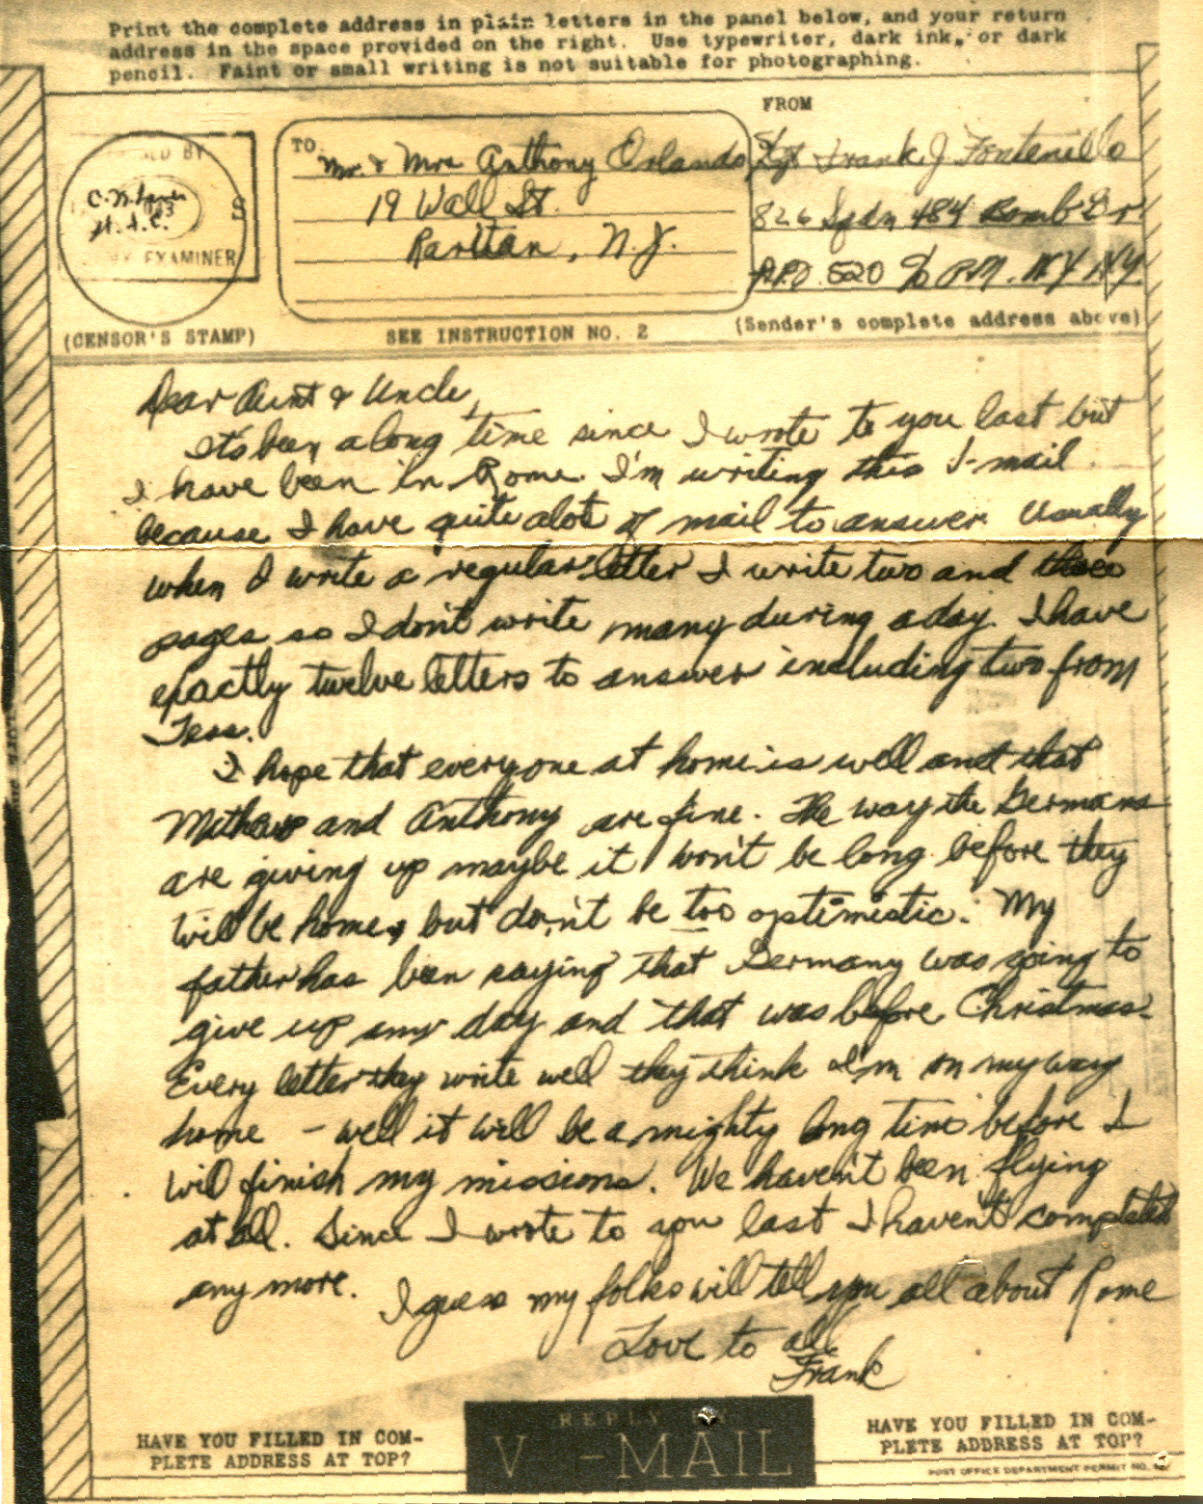 Print the complete address in plain letters in the panel below, and your return
address in the space provided on the right. Use typewriter, dark ink, or dark
pencil. Faint or small writing is not suitable for photographing.
ED BY
S
Y EXAMINER
(CENSOR'S STAMP)
TO
Mr. & Mrs Anthony Orlando
19 Wall St.
Raritan, N.J.
SEE INSTRUCTION NO. 2
FROM
Sgt Frank J Fontenillo
826 Sqdn 484 Bomb Gr
A.P.O. 520 % P.M. N.Y. N.Y.
(Sender's complete address above)
Dear Aunt & Uncle,
It's been a long time since I wrote to you last but
I have been in Rome. I'm writing this V-mail
because I have quite alot of mail to answer. Usually
when I write a regular letter I write two and three
pages so I don't write many during a day. I have
exactly twelve letters to answer including two from
Tess.
I hope that everyone at home is well and that
Mathew and Anthony are fine. The way the Germans
are giving up maybe it won't be long before they
will be home, but don't be too optimistic. My
father has been saying that Germany was going to
give up any day and that was before Christmas.
Every letter they write well they think I'm on my way
home - well it will be a mighty long time before I
will finish my missions. We haven't been flying
at all. Since I wrote to you last I haven't completed
any more. I guess my folks will tell you all about Rome
Love to all
Frank
HAVE YOU FILLED IN COM-
PLETE ADDRESS AT TOP?
REPLY BY
V - MAIL
HAVE YOU FILLED IN COM-
PLETE ADDRESS AT TOP?
POST OFFICE DEPARTMENT PERMIT NO.